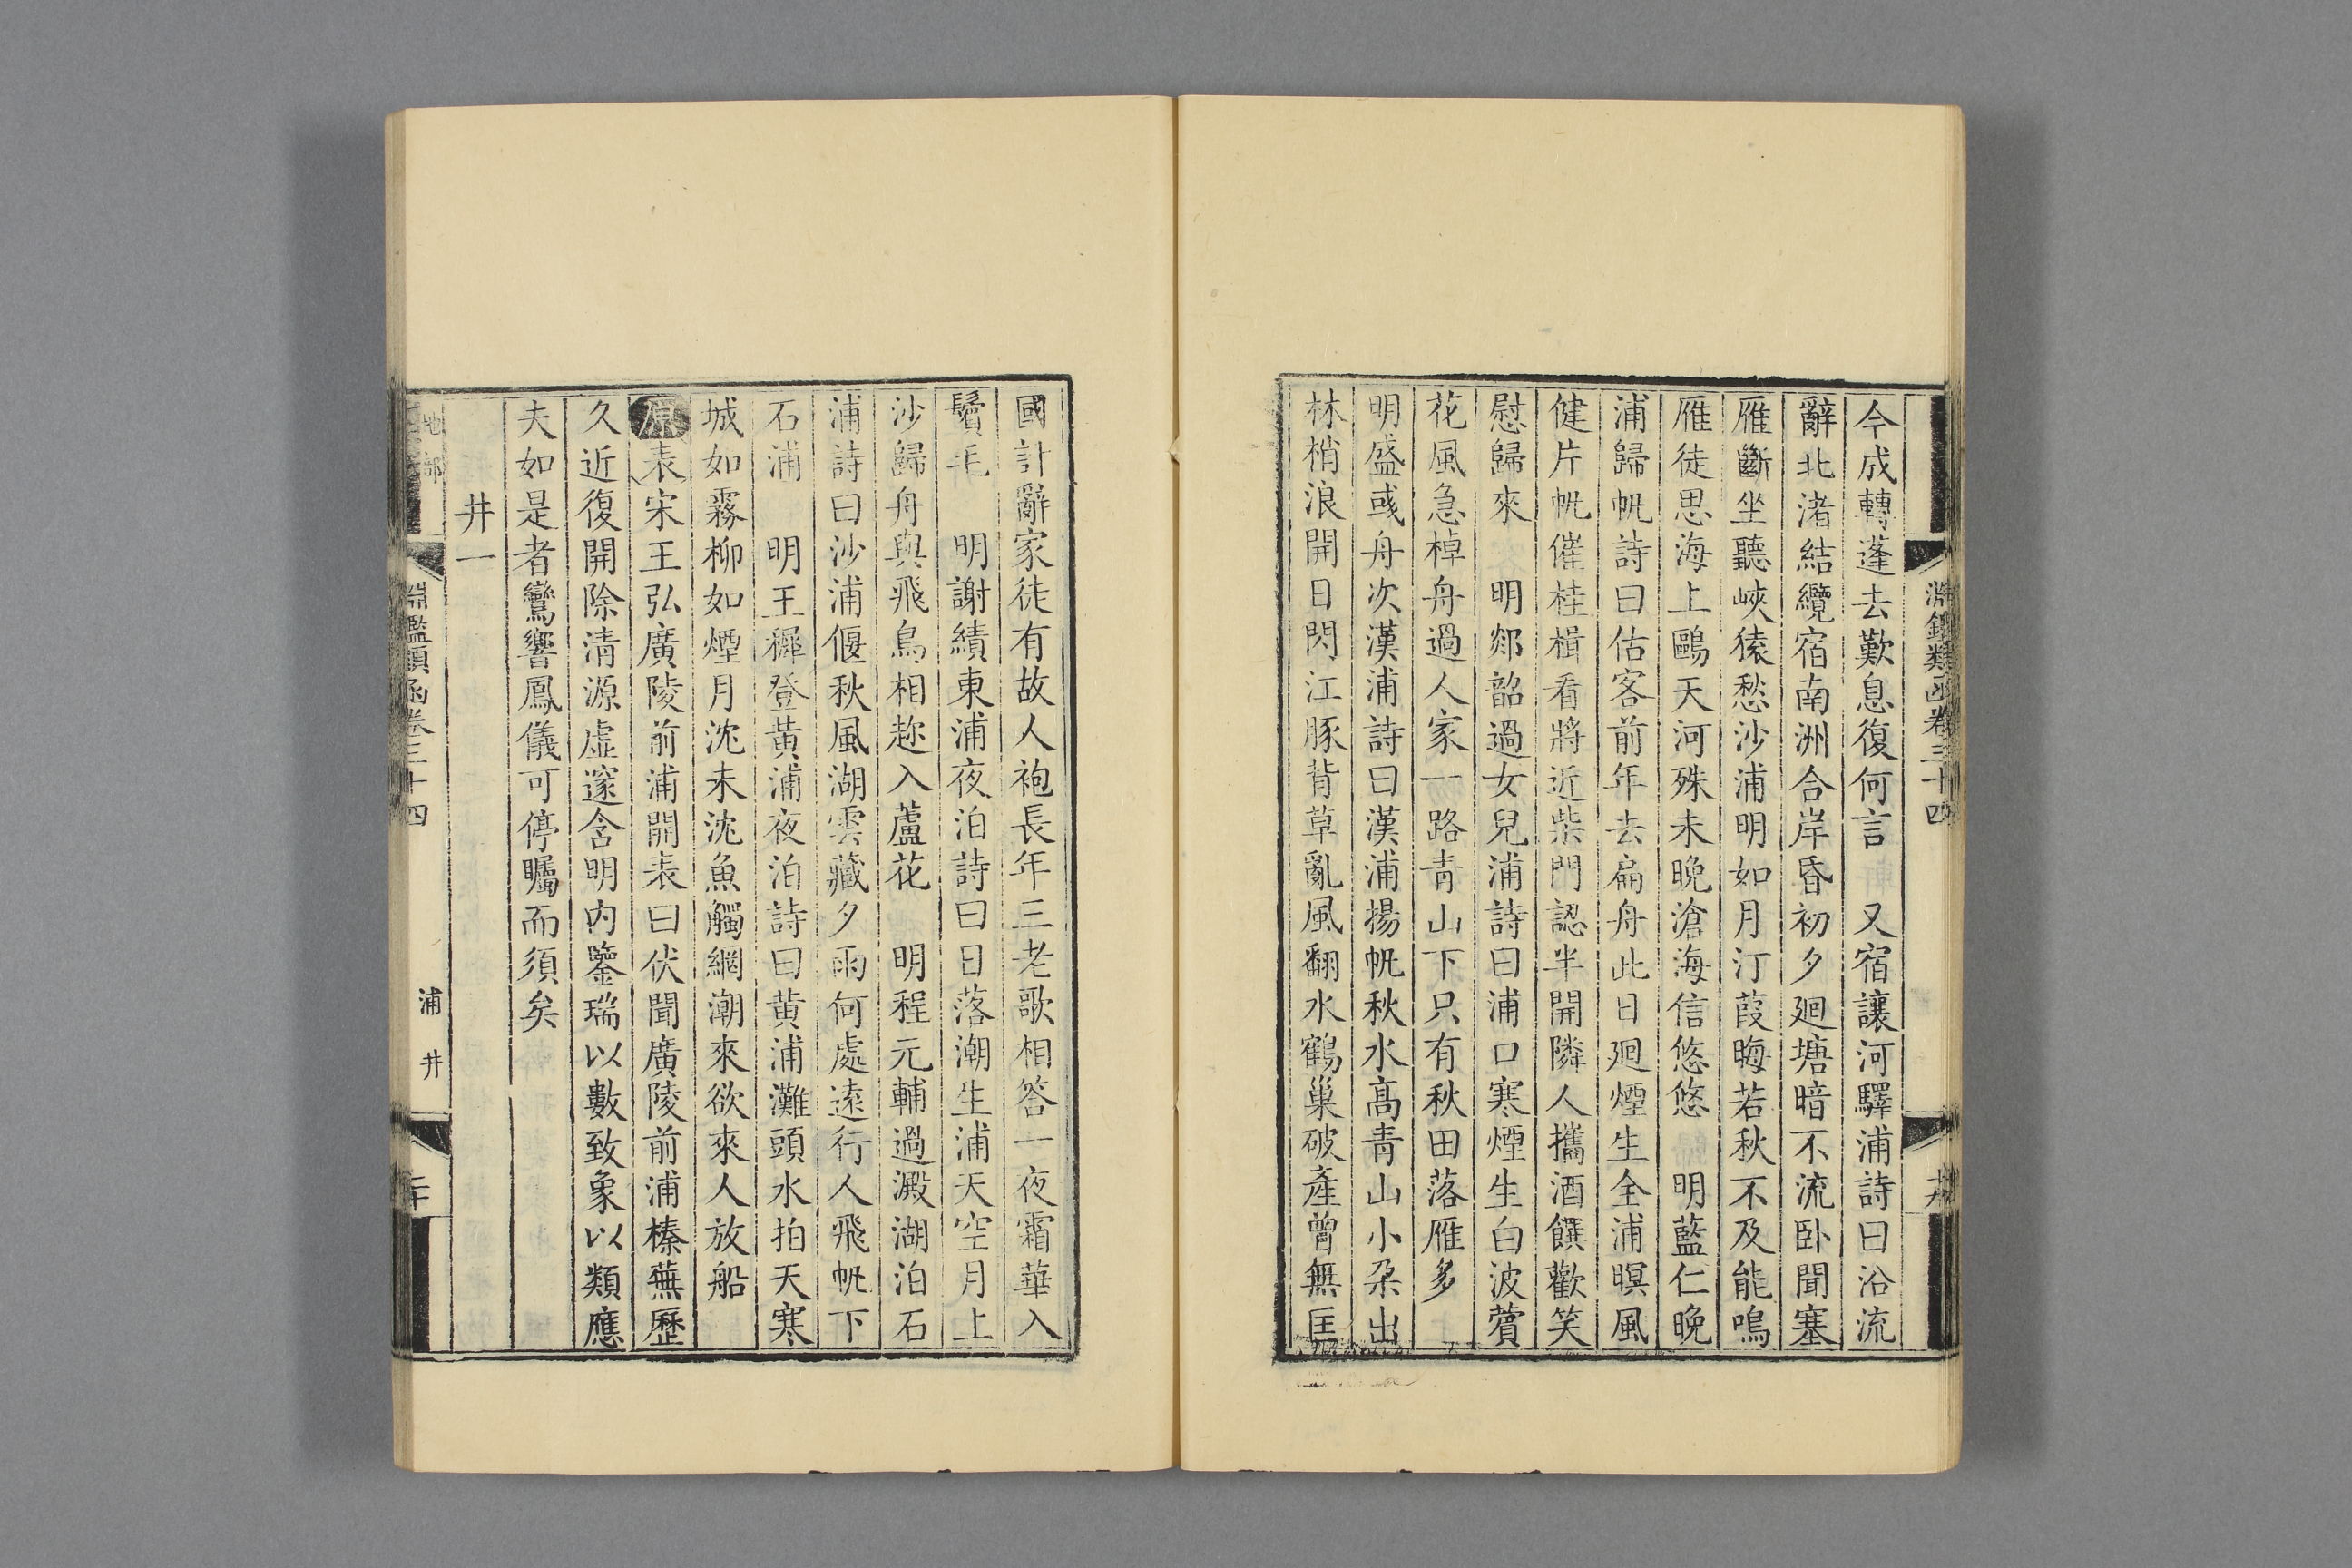 淵鑑類函卷三十四
今成轉蓬去歎息復何言　又宿讓河驛浦詩曰沿流
辭北渚結纜宿南洲合岸昏初夕廻塘暗不流卧聞塞
雁斷坐聽峽猿愁沙浦明如月汀葭晦若秋不及能鳴
雁徒思海上鷗天河殊未曉滄海信悠悠　明藍仁晚
浦歸帆詩曰估客前年去扁舟此日廻煙生全浦暝風
健片帆催桂楫看將近柴門認半開隣人攜酒饌歡笑
慰歸來　明郯韶過女兒浦詩曰浦口寒煙生白波蘋
花風急棹舟過人家一路青山下只有秋田落雁多
明盛彧舟次漢浦詩曰漢浦揚帆秋水高青山小朶出
林梢浪開日閃江豚背草亂風翻水鶴巢破產曾無匡
國計辭家徒有故人袍長年三老歌相答一夜霜華入
鬢毛　明謝績東浦夜泊詩曰日落潮生浦天空月上
沙歸舟與飛鳥相趂入蘆花　明程元輔過澱湖泊石
浦詩曰沙浦偃秋風湖雲藏夕雨何處遠行人飛帆下
石浦　明王穉登黃浦夜泊詩曰黃浦灘頭水拍天寒
城如霧柳如煙月沈未沈魚觸網潮來欲來人放船
原表宋王弘廣陵前浦開表曰伏聞廣陵前浦榛蕪歷
久近復開除清源虛邃含明內鑒瑞以數致象以類應
夫如是者鸞響鳳儀可停矚而須矣
井一
地部
淵鑑類函卷三十四
浦　井
二十